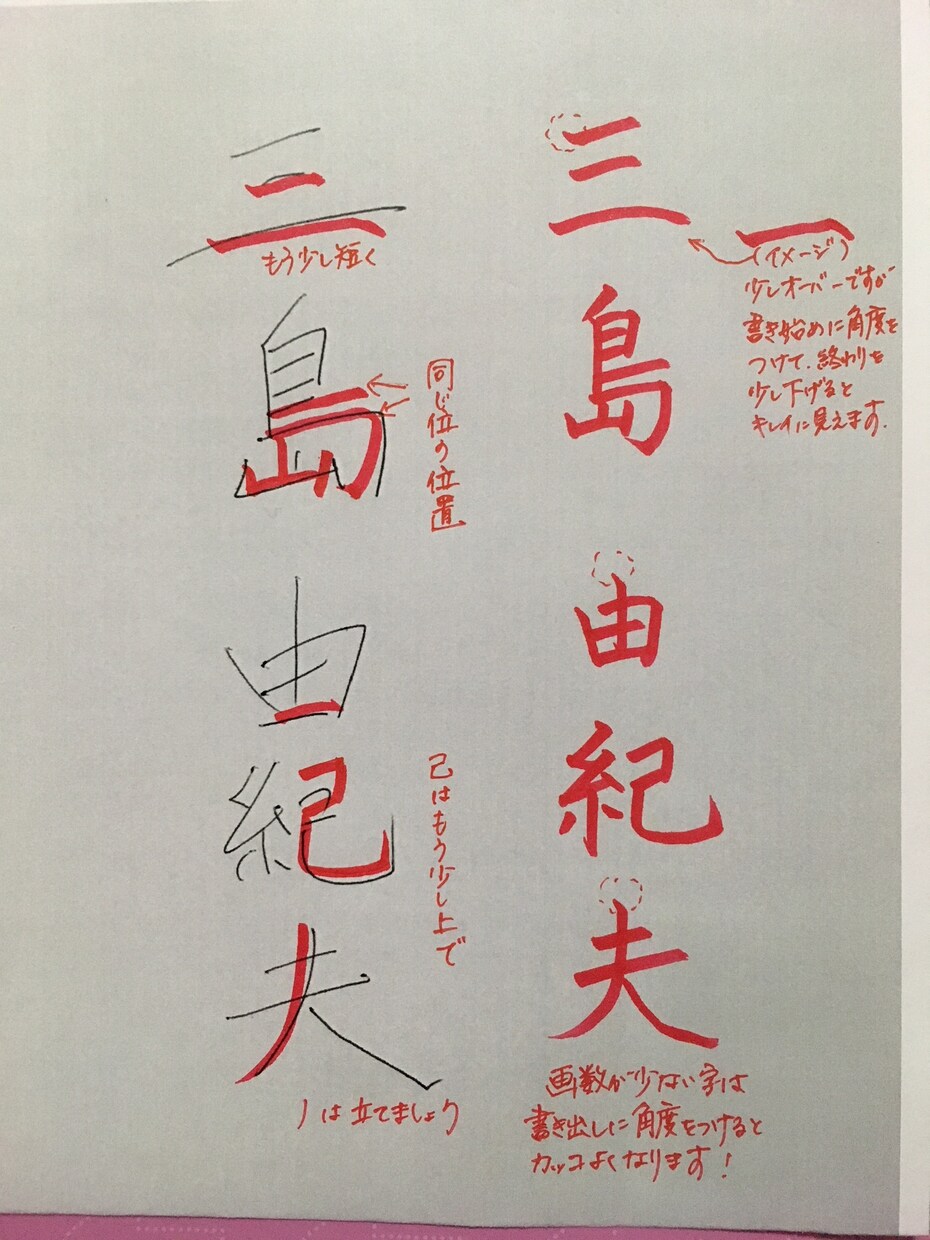 三島由紀夫
もう少し短く
同じ位の位置
己はもう少し上で
ノは立てましょう
三島由紀夫
一
(イメージ)
少しオーバーですが
書き始めに角度を
つけて、終わりを
少し下げると
キレイに見えます.
画数が少ない字は
書き出しに角度をつけると
カッコよくなります!